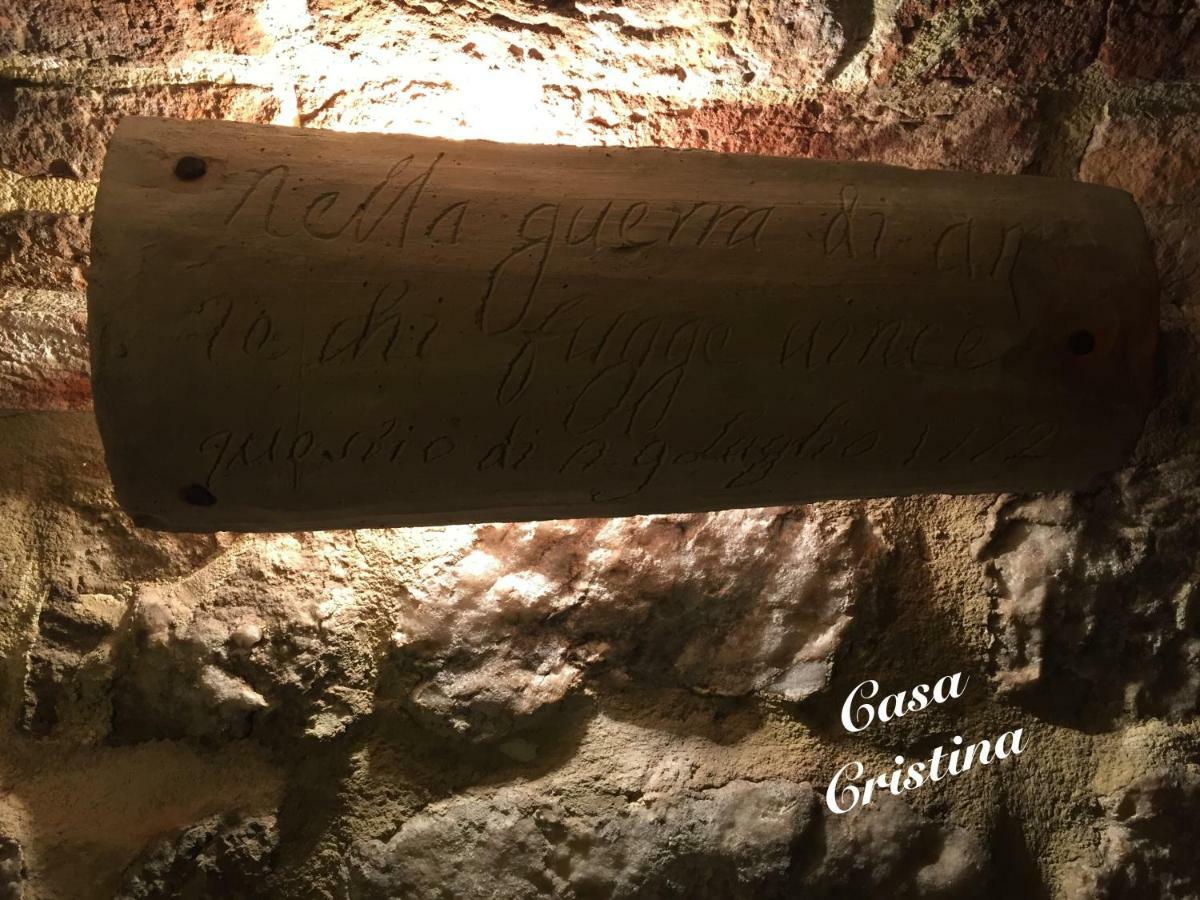 Nella guerra di
chi fugge vince
di 29 Luglio 1772
Casa
Cristina